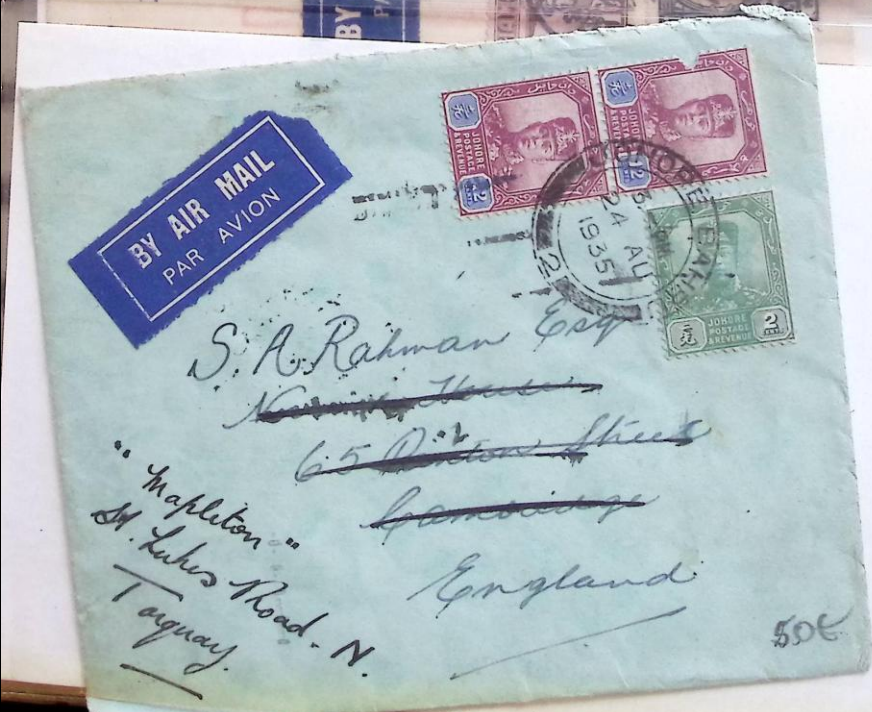 BY AIR MAIL
PAR AVION
JOHORE
POSTAGE
& REVENUE
12
JOHORE
POSTAGE
& REVENUE
12
JOHORE BAHRU
24 AU
1935
2
JOHORE
POSTAGE
& REVENUE
2
S. A. Rahman Esq
House
65 Street
Cambridge
England
"Mapleton"
St. Lukes Road - N.
Torquay.
50€
BY